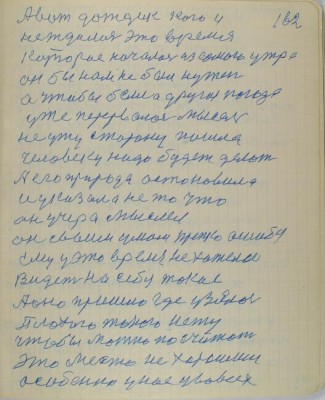 182
А вот дождик кого и
не ждался это время
Которое началося из самого утра
он бы нам не был нужен
а чтобы была другая погода
уже перервалася мысль
не у ту сторону пошла
Человеку надо будет делать
А его природа остановила
и указала не то что
он учера мыслил
он своим умом ошибу
ему у это время не хотелося
Видеть на себу такае
А оно пришло где узялося
Плохого такого нету
чтобы можно посчитать
Это место не хорошим
особенно у нас у во всех